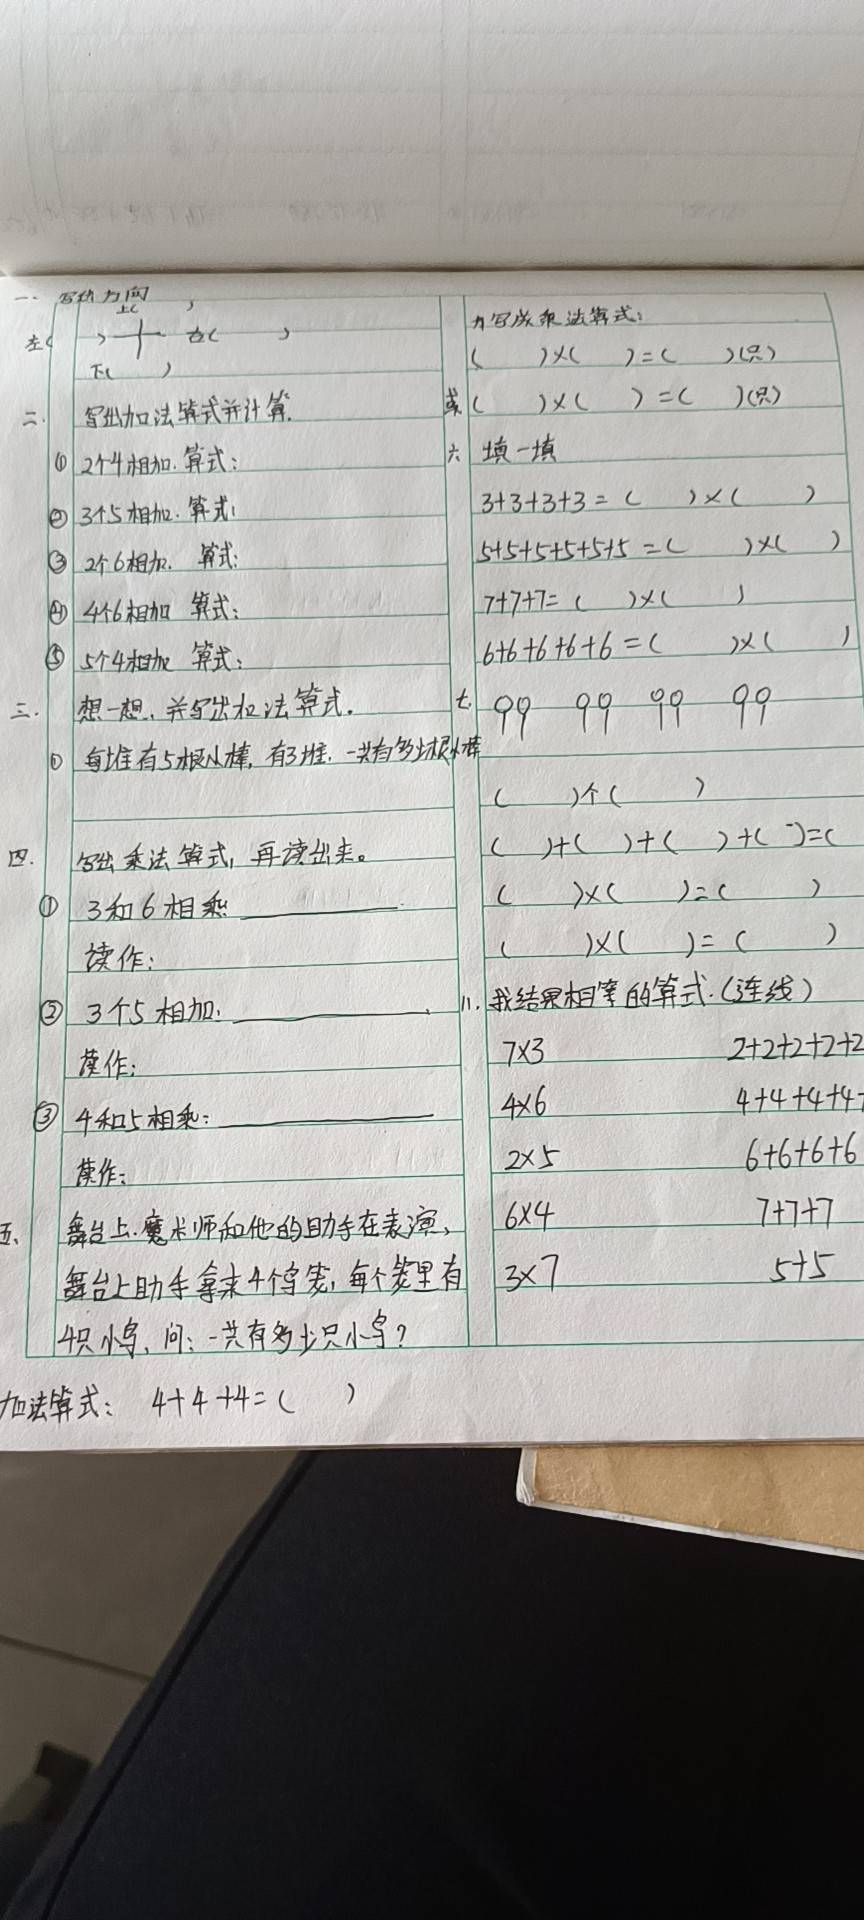 一. 写出方向
上( )
左( ) 右( )
下( )
二. 写出加法算式并计算.
① 2个4相加. 算式:
② 3个5相加. 算式:
③ 2个6相加. 算式:
④ 4个6相加 算式:
⑤ 5个4相加 算式:
三. 想一想, 并写出加法算式.
① 每堆有5根小棒, 有3堆. 一共有多少根小棒
四. 写出乘法算式, 再读出来。
① 3和6相乘
读作:
② 3个5相加:
读作:
③ 4和5相乘:
读作:
五、舞台上.魔术师和他的助手在表演,
舞台上助手拿来4个鸟笼, 每个笼里有
4只小鸟, 问: 一共有多少只小鸟?
加法算式: 4+4+4=( )
写成乘法算式:
( )×( )=( )(只)
或( )×( )=( )(只)
六 填一填
3+3+3+3=( )×( )
5+5+5+5+5+5=( )×( )
7+7+7=( )×( )
6+6+6+6+6=( )×( )
七.
( )个( )
( )+( )+( )+( )=(
( )×( )=( )
( )×( )=( )
八. 找结果相等的算式.(连线)
7×3 2+2+2+2+2
4×6 4+4+4+4+
2×5 6+6+6+6
6×4 7+7+7
3×7 5+5